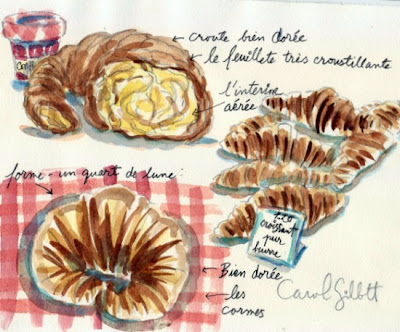 Conf
croute bien dorée
le feuilleté très croustillante
l'interim
aérée
forme - un quart de lune:
croissant
pur
burre
Bien dorée
les
cornes
Carol Gillott